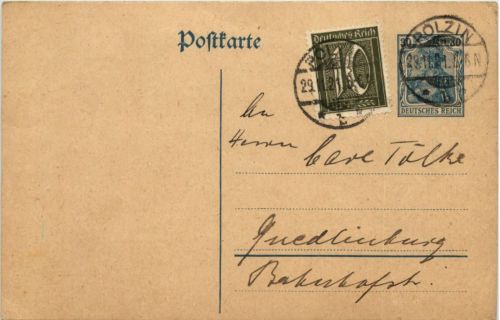 Postkarte
Deutsches Reich
10
30 30
DEUTSCHES REICH
POLZIN
29.11.21
An
Herrn Carl Tölke
Quedlinburg
Bahnhofstr.